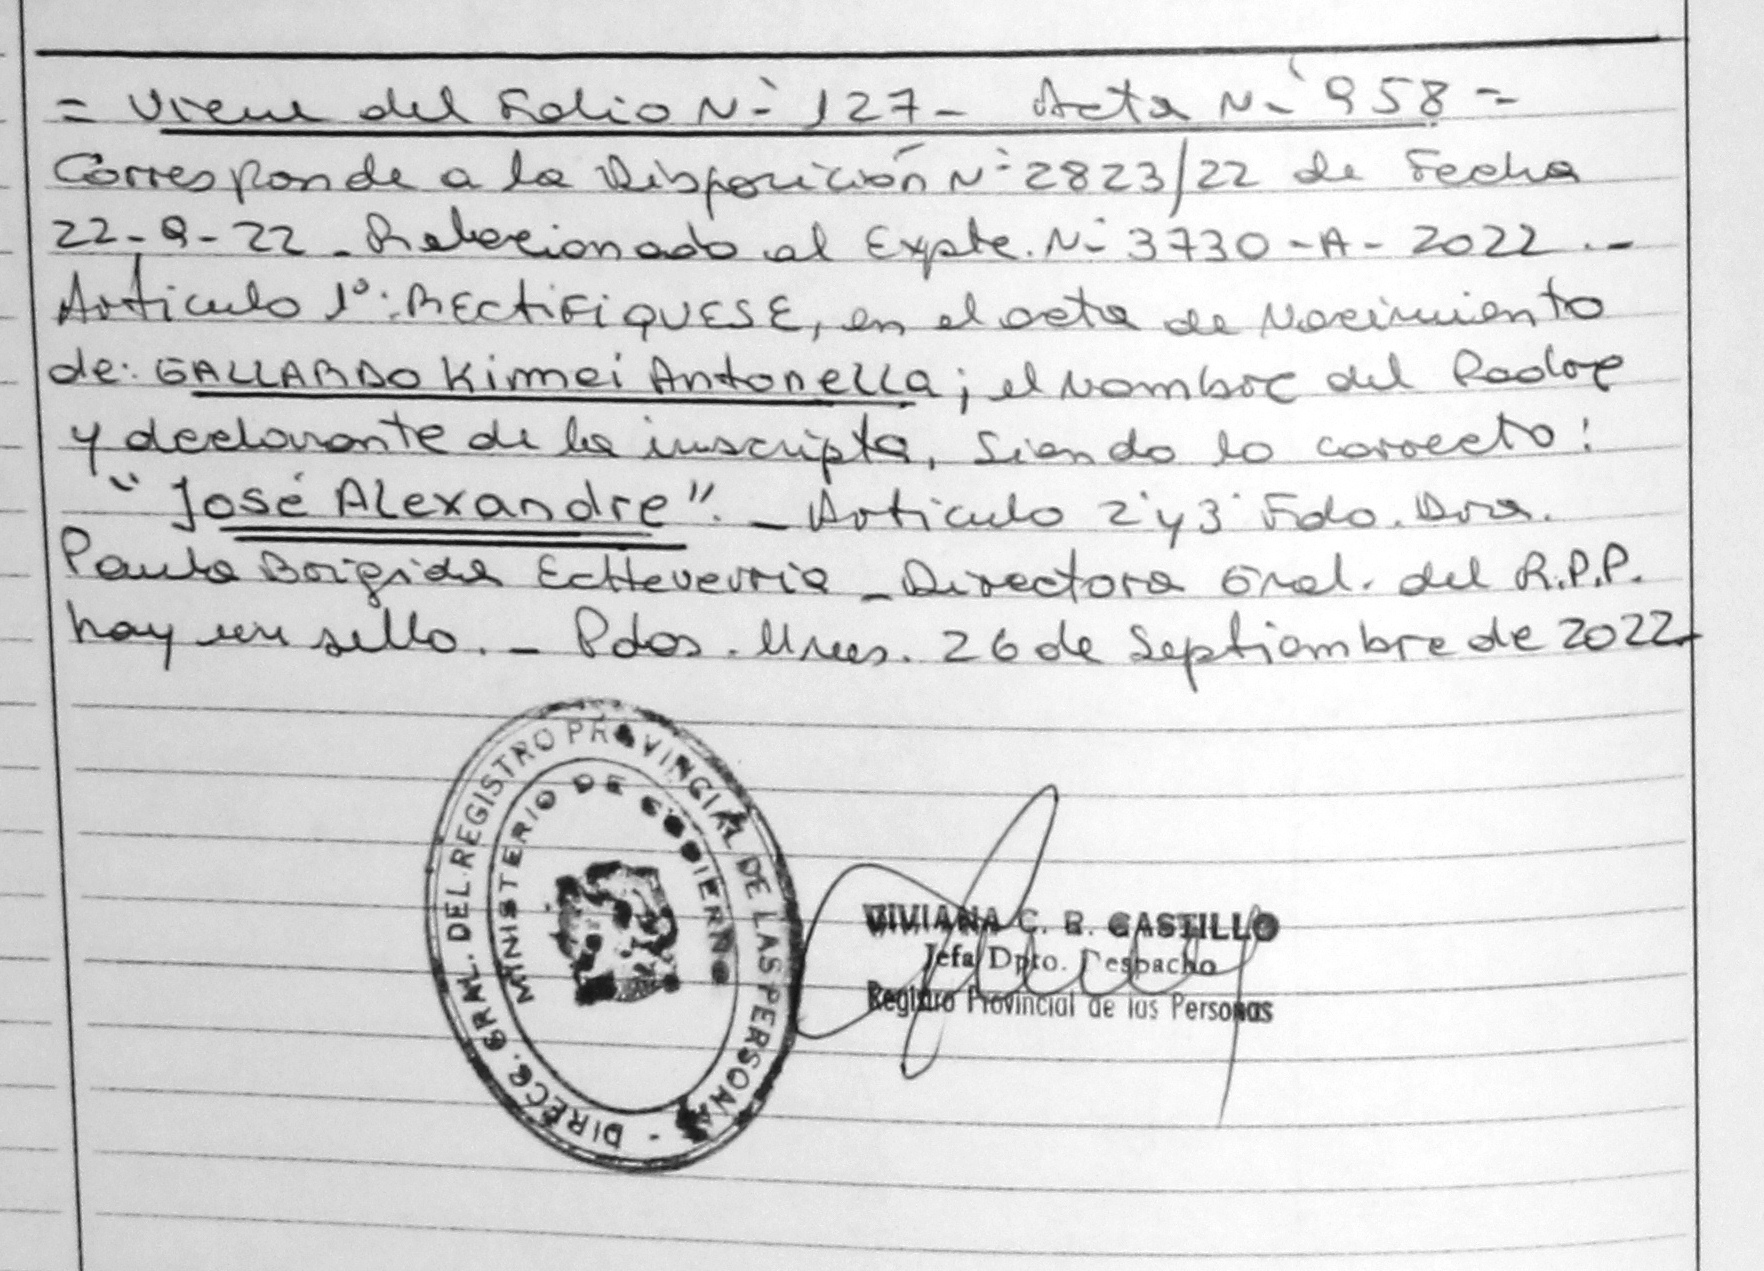 = Viene del Folio N° 127 - Acta N° 958 =
Corresponde a la Disposición N° 2823/22 de Fecha
22-9-22 - Relacionado al Expte. N° 3730-A-2022.-
Artículo 1°: RECTIFIQUESE, en el acta de Nacimiento
de: GALLARDO Kimei Antonella; el nombre del Padre
y declarante de la inscripta, Siendo lo correcto:
"José Alexandre". - Articulo 2° y 3° Fdo. Dra.
Paula Brigida Echeverria - Directora Gral. del R.P.P.
hay un sello. - Pdas. Mnes. 26 de Septiembre de 2022-
DIRECC. GRAL. DEL REGISTRO PROVINCIAL DE LAS PERSONAS
MINISTERIO DE GOBIERNO
VIVIANA C. B. CASTILLO
Jefa Dpto. Despacho
Registro Provincial de las Personas